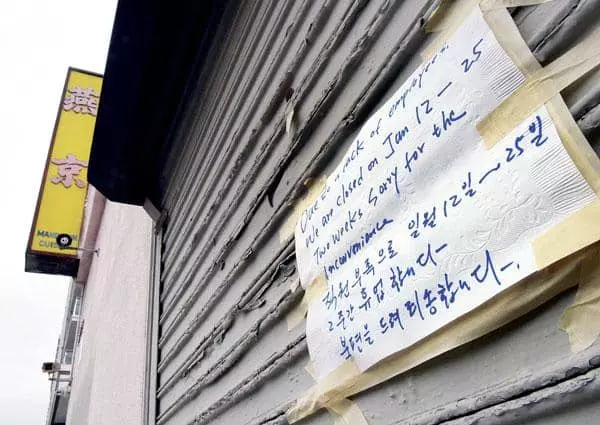 燕
京
MAND
CUIS
Due to a lack of employees.
We are closed on Jan 12 - 25
Two weeks Sorry for the
Inconvenience
직원 부족으로 일월 12일 ~ 25일
2주간 휴업 합니다.
불편을 드려 죄송합니다.